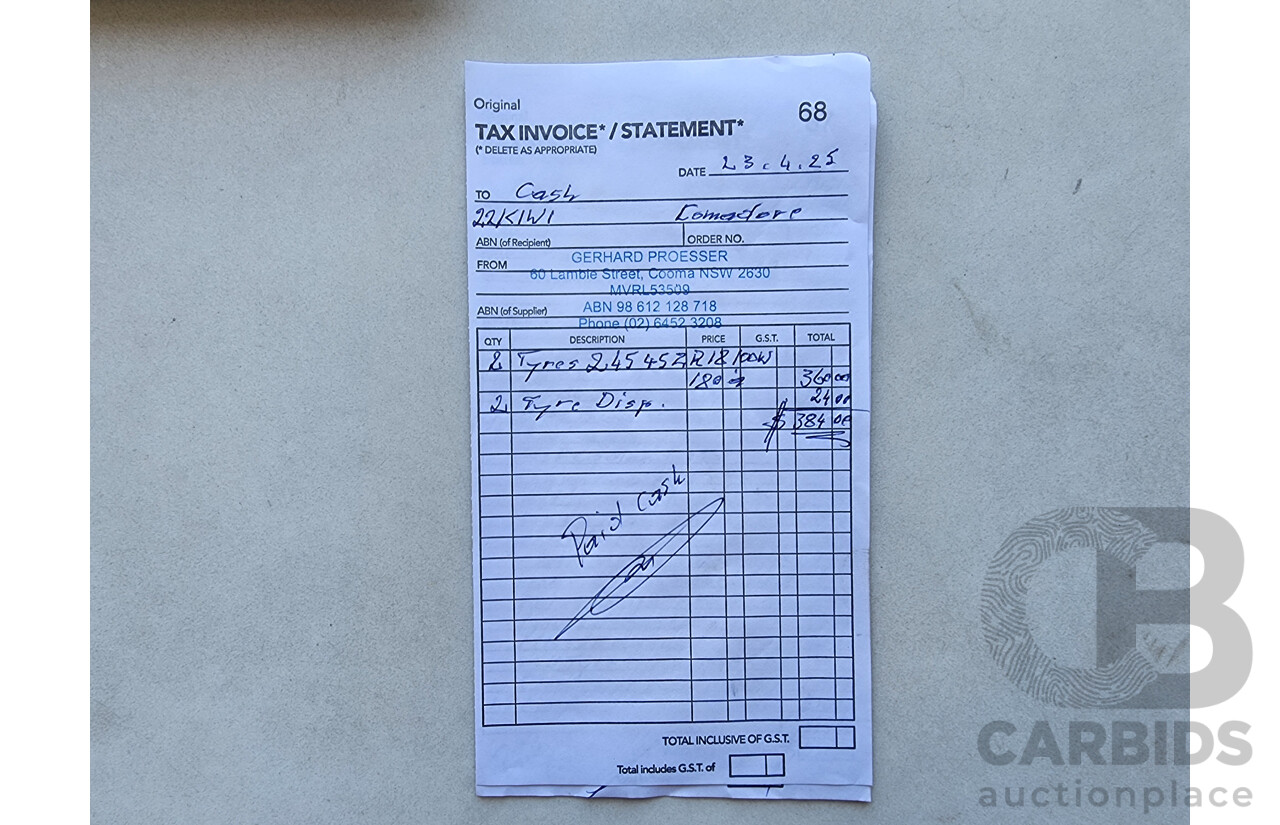 Original
68
TAX INVOICE* / STATEMENT*
(* DELETE AS APPROPRIATE)
DATE 23.4.25
TO Cash
22KIWI Comodore
ABN (of Recipient) ORDER NO.
GERHARD PROESSER
FROM
60 Lambie Street, Cooma NSW 2630
MVRL53509
ABN (of Supplier) ABN 98 612 128 718
Phone (02) 6452 3208
QTY DESCRIPTION PRICE G.S.T. TOTAL
2 Tyres 245 45ZR18 100W
180 360 00
2 Tyre Disp. 24 00
$ 384 00
Paid Cash
TOTAL INCLUSIVE OF G.S.T.
Total includes G.S.T. of
CB
CARBIDS
auctionplace